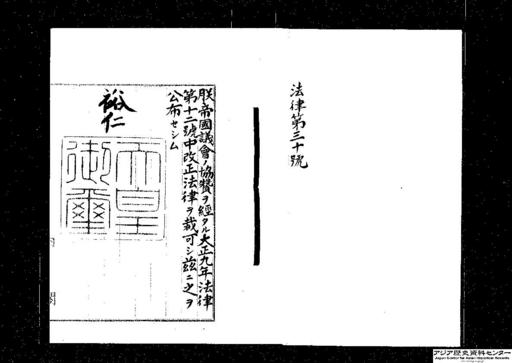 法律第三十號
朕帝國議會ノ協贊ヲ經タル大正九年法律
第十二號中改正法律ヲ裁可シ茲ニ之ヲ
公布セシム
裕仁
天皇
御璽
アジア歴史資料センター
Japan Center for Asian Historical Records